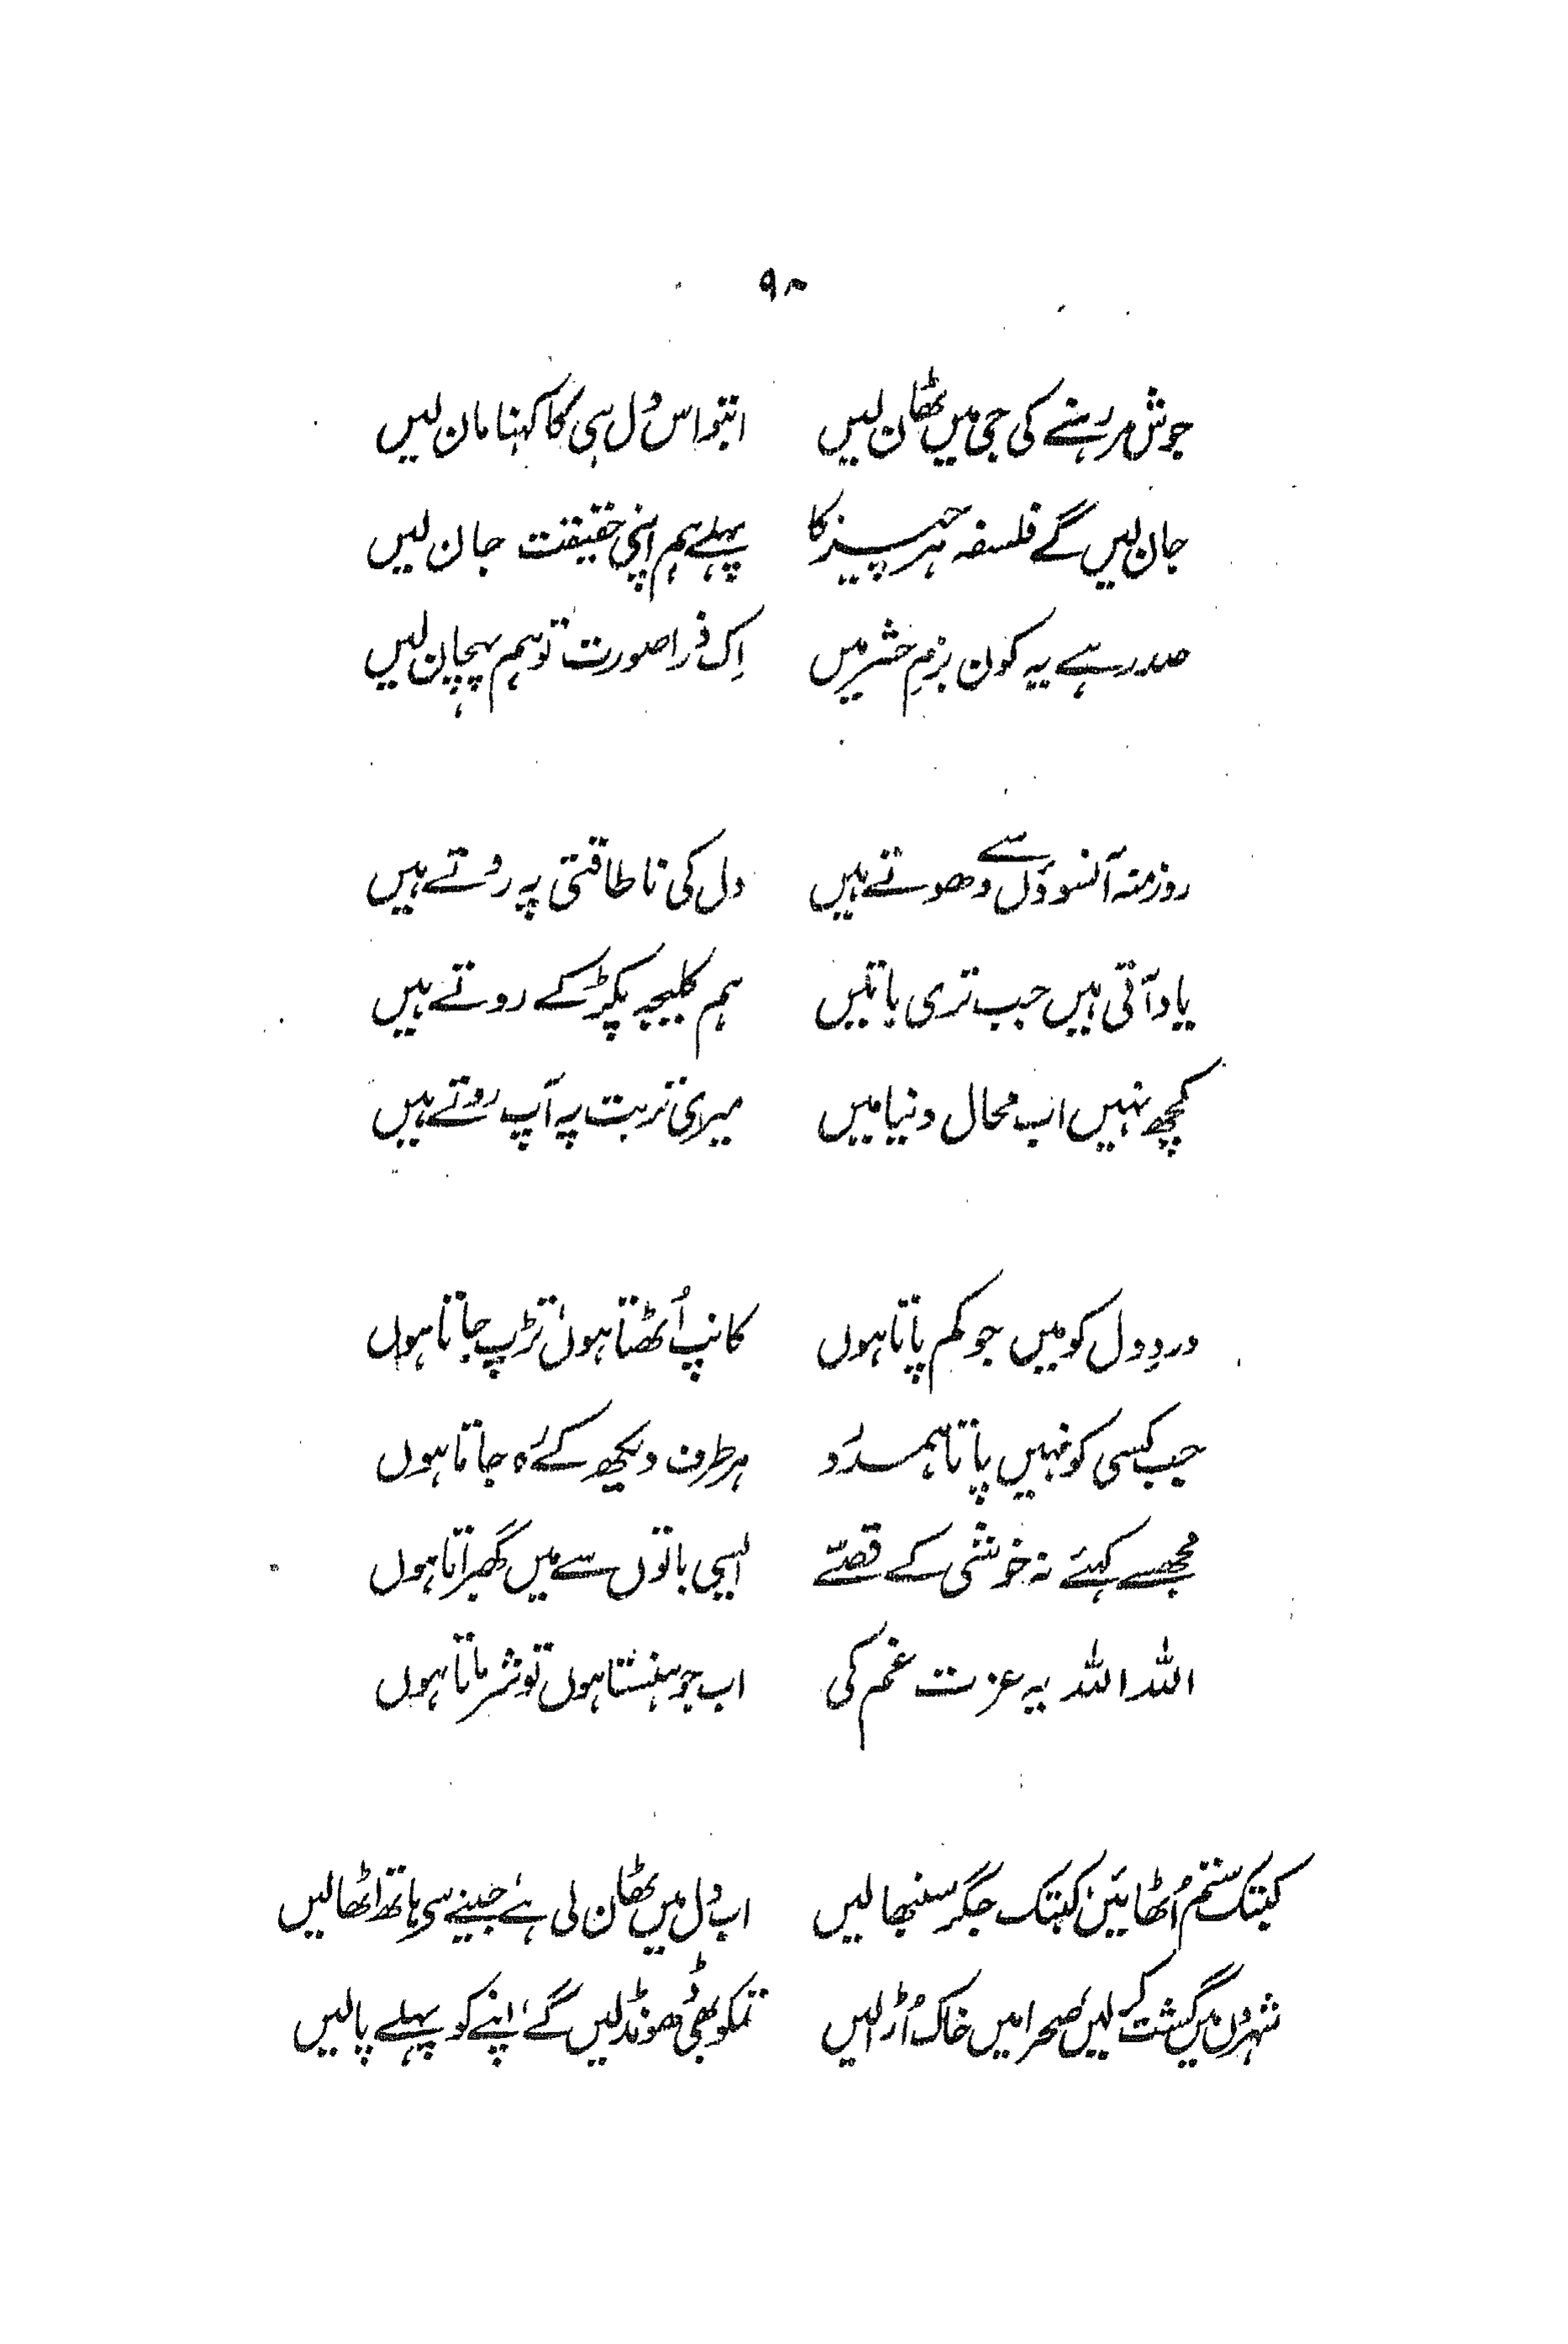 ۹۸
جوش مر رہنے کی جی میں ٹھان لیں ابتو اس دل ہی کا کہنا مان لیں
جان لیں گے فلسفہ ہر چیز کا پہلے ہم اپنی حقیقت جان لیں
صدر ہے یہ کون بزمِ حشر میں اِک ذرا صورت تو ہم پہچان لیں
روز منہ آنسوؤں سے دھوتے ہیں دل کی ناطاقتی پہ روتے ہیں
یاد آتی ہیں جب تری باتیں ہم کلیجہ پکڑ کے روتے ہیں
کچھ نہیں اب محال دنیا میں میری تربت پہ آپ روتے ہیں
دردِ دل کو میں جو کم پاتا ہوں کانپ اُٹھتا ہوں، تڑپ جاتا ہوں
جب کسی کو نہیں پاتا ہمدرد ہر طرف دیکھ کے رہ جاتا ہوں
مجھسے کہئے نہ خوشی کے قصّے ایسی باتوں سے میں گھبراتا ہوں
اللہ اللہ یہ عزت غم کی اب جو ہنستا ہوں تو شرماتا ہوں
کبتک ستم اُٹھائیں، کبتک جگر سنبھالیں اب دل میں ٹھان لی ہے، جینے سی ہاتھ اٹھالیں
شہروں میں گشت کر لیں، صحرا میں خاک اُڑالیں تمکو بھی ڈھونڈ لیں گے، اپنے کو پہلے پالیں